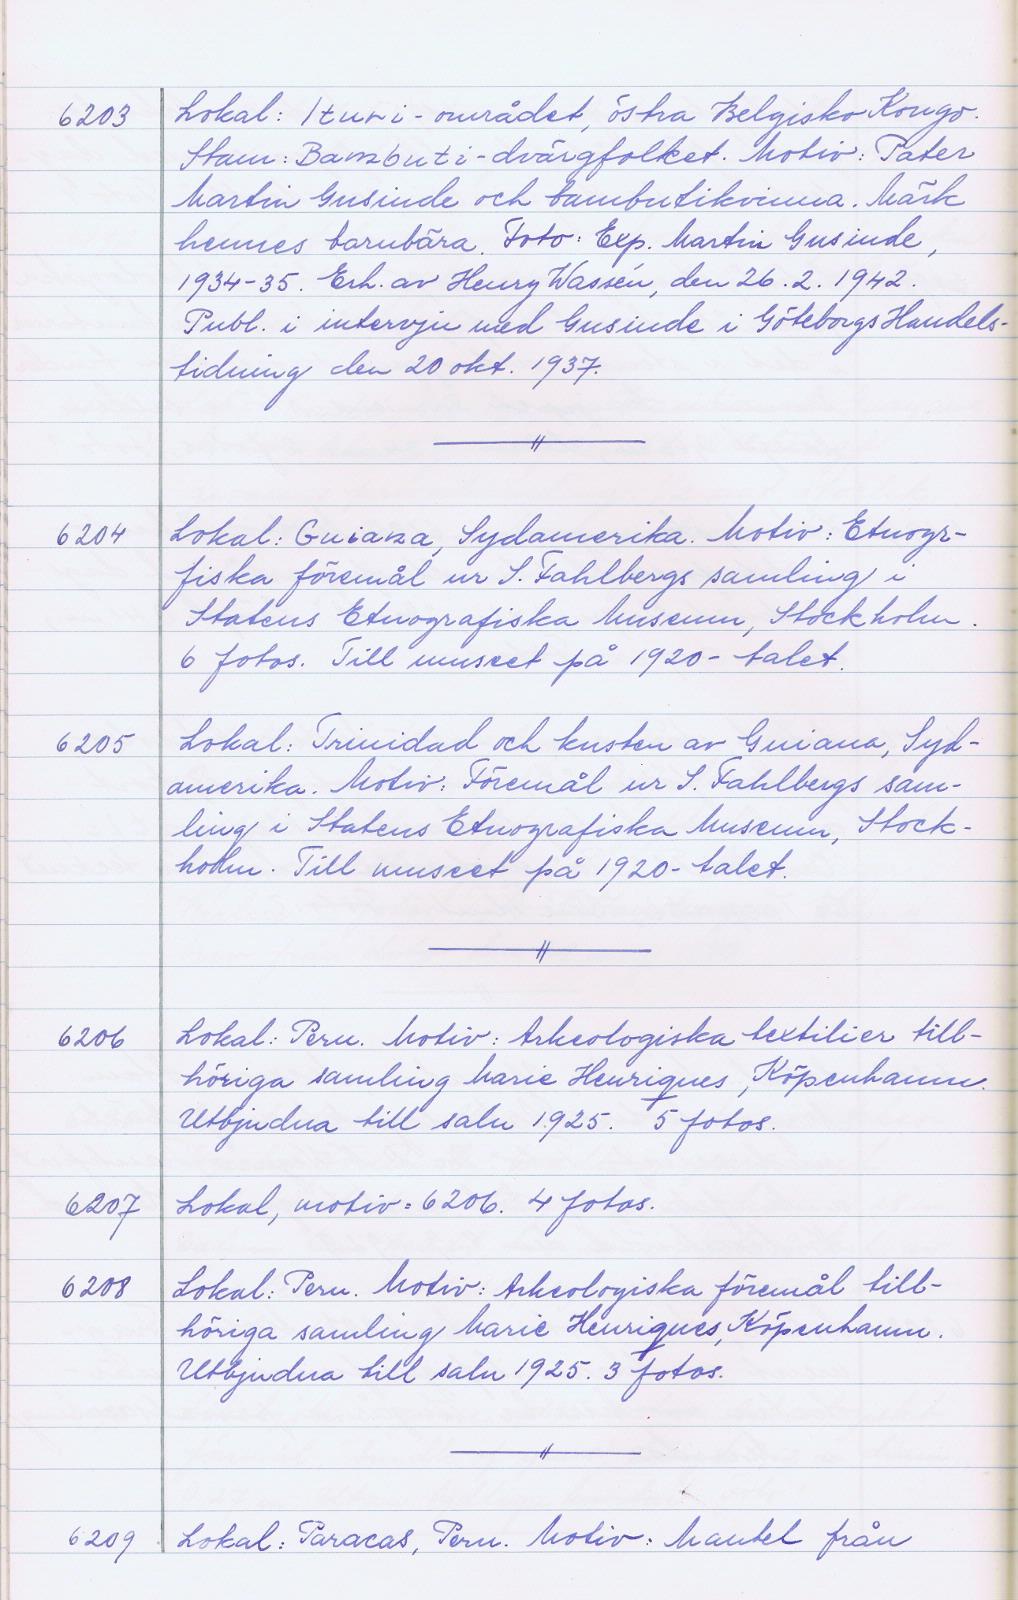 6203 Lokal: Ituri-området, östra Belgiska Kongo.
Stam: Bambuti-dvärgfolket. Motiv: Pater
Martin Gusinde och bambutikvinna. Märk
hennes barnbära. Foto: Exp. Martin Gusinde,
1934-35. Erh. av Henry Wassén, den 26.2.1942.
Publ. i intervju med Gusinde i Göteborgs Handels-
tidning den 20 okt. 1937.
6204 Lokal: Guiana, Sydamerika. Motiv: Etnogr-
fiska föremål ur S. Fahlbergs samling i
Statens Etnografiska Museum, Stockholm.
6 fotos. Till museet på 1920-talet.
6205 Lokal: Trinidad och kusten av Guiana, Syd-
amerika. Motiv: Föremål ur S. Fahlbergs sam-
ling i Statens Etnografiska Museum, Stock-
holm. Till museet på 1920-talet.
6206 Lokal: Peru. Motiv: Arkeologiska textilier till-
höriga samling Marie Henriques, Köpenhamn.
Utbjudna till salu 1925. 5 fotos.
6207 Lokal, motiv = 6206. 4 fotos.
6208 Lokal: Peru. Motiv: Arkeologiska föremål till-
höriga samling Marie Henriques, Köpenhamn.
Utbjudna till salu 1925. 3 fotos.
6209 Lokal: Paracas, Peru. Motiv: Mantel från